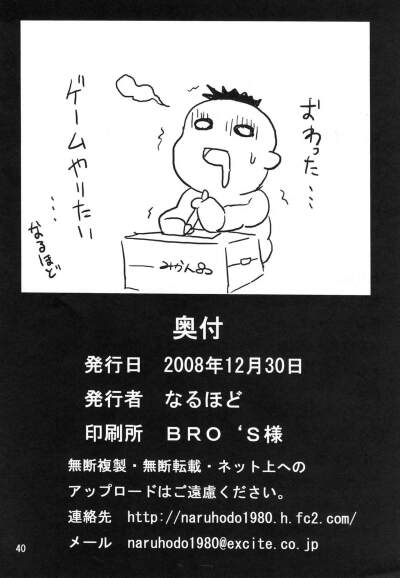 おわった…
ゲームやりたい
…
なるほど
みかん80
奥付
発行日 2008年12月30日
発行者 なるほど
印刷所 BRO 'S様
無断複製・無断転載・ネット上への
アップロードはご遠慮ください。
連絡先 http://naruhodo1980.h.fc2.com/
メール naruhodo1980@excite.co.jp
40